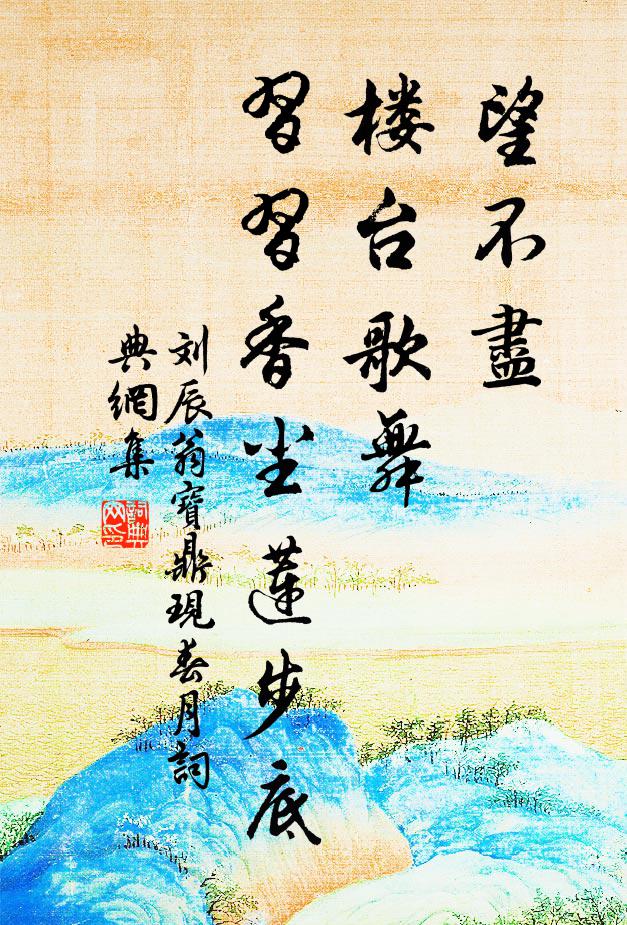 望不盡
楼台歌舞
習習香尘蓮步底
刘辰翁寶鼎現春月詞
典網集
詞典网印